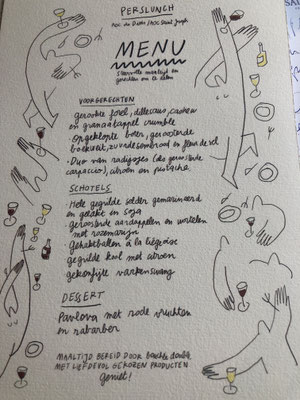 PERSLUNCH
Roc du Diable / AOC Saint Joseph
MENU
Sfeervolle maaltijd en
gerechten om te delen
VOORGERECHTEN
gerookte forel, dillesaus, cashew
en granaatappel crumble
Opgeklopte boter, geroosterde
boekweit, zuurdesembrood en fleur de sel
· Duo van radijsjes (als geroosterde
carpaccio), citroen en pistache
SCHOTELS
· Hele gegrilde selder gemarineerd
en gelakt in soja
Geroosterde aardappelen en wortelen
met rozemarijn
Gehaktballen à la liégeoise
gegrilde kool met citroen
gekonfijte varkenswang
DESSERT
Pavlova met rode vruchten
en rabarber
MAALTIJD BEREID DOOR
MET LIEFDEVOL GEKOZEN PRODUCTEN
Geniet!